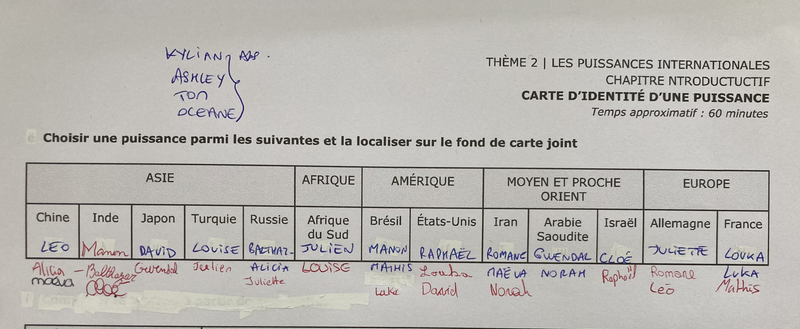 KYLIAN ABS.
ASHLEY
TOM
OCEANE
THÈME 2 | LES PUISSANCES INTERNATIONALES
CHAPITRE NTRODUCTUCTIF
CARTE D'IDENTITÉ D'UNE PUISSANCE
Temps approximatif : 60 minutes
Choisir une puissance parmi les suivantes et la localiser sur le fond de carte joint
ASIE AFRIQUE AMÉRIQUE MOYEN ET PROCHE ORIENT EUROPE
Chine Inde Japon Turquie Russie Afrique du Sud Brésil États-Unis Iran Arabie Saoudite Israël Allemagne France
LEO Manon DAVID LOUISE BALTHAZ- JULIEN MANON RAPHAËL ROMANE GWENDAL CLOÉ JULIETTE LOUKA
Alicia Balthazar Gwendal Julien ALICIA LOUISE MATHIS Louka MAËVA NORAH Raphaël Romane LUKA
maeva Juliette Luka David Norah Léo Mathis